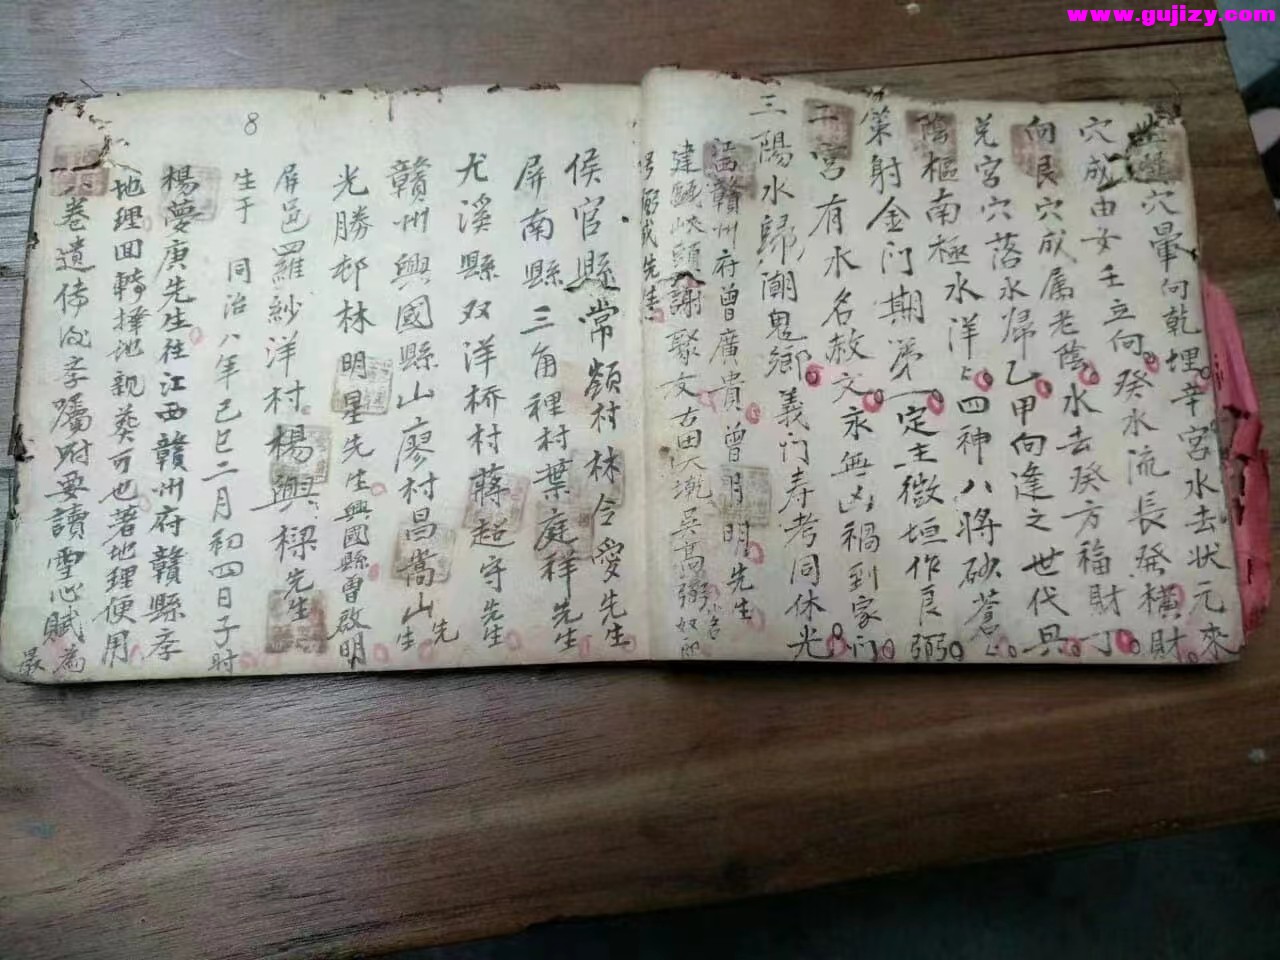 www.gujizy.com
穴暈向乾埋辛宮水去狀元來
穴成由女壬立向癸水流長發橫財
向艮穴成属老陰水去癸方福財丁
兌宮穴落水歸乙甲向逢之世代興
陰樞南極水洋々四神八將砂蒼々
策射金门期苐一定主微垣作良弼
二宮有水名赦文永無凶禍到家门
三陽水歸潮鬼鄉義门寿考同休光
江西贛州府曾廣貴曾明明先生
建 峽頭謝聚文古田 吳高弼
成先生
侯官縣常 村林令愛先生
屏南縣三角裡村葉庭祥先生
尤溪縣双洋桥村蔣超守先生
贛州興國縣山廖村昌嵩山先生
光勝邨林明星先生興國縣曾啟明
屏邑四維紗洋村楊興樑先生
8
生于同治八年己巳二月初四日子时
楊夢庚先生往江西贛州府贛縣孝
地理回轉擇地親葵可也著地理便用
卷遺傳 孝囑咐要讀雪心賦為
最